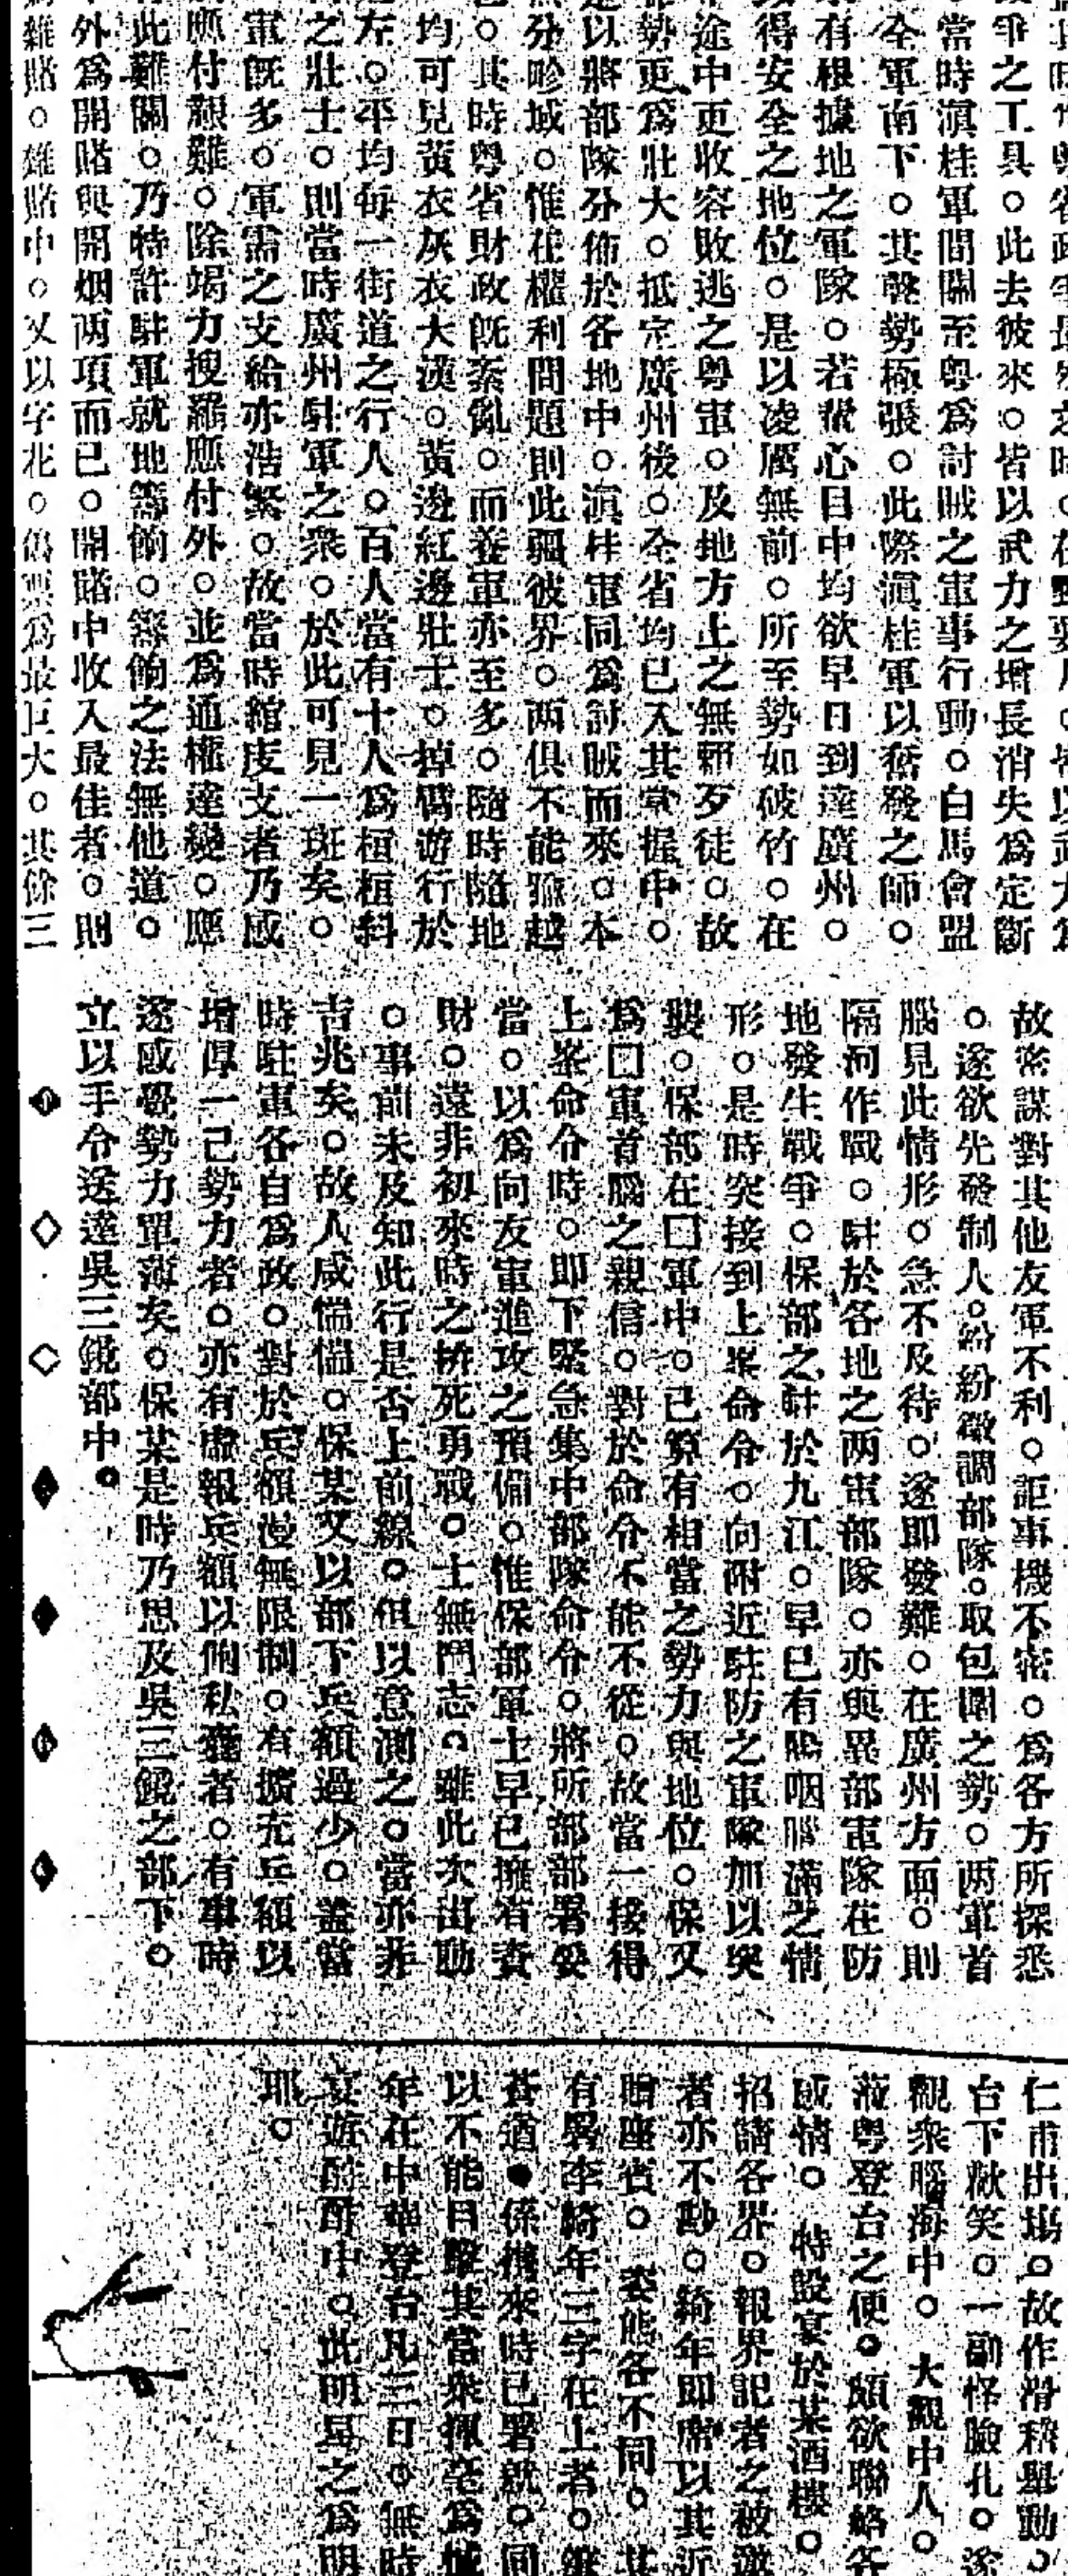 爭之工具。此去彼來。皆以武力之增長消失為定斷
當時滇桂軍間關至粵為討賊之軍事行動。白馬會盟
全軍南下。其聲勢極張。此際滇桂軍以奮發之師。
有根據地之軍隊。若輩心目中均欲早日到達廣州。
得安全之地位。是以凌厲無前。所至勢如破竹。在
途中更收容敗逃之粵軍。及地方上之無賴歹徒。故
勢更為壯大。抵定廣州後。全省均已入其掌握中。
以將部隊分佈於各地中。滇桂軍同為討賊而來。本
分畛域。惟在權利問題則此疆彼界。兩俱不能踰越
。其時粵省財政既紊亂。而養軍亦至多。隨時隨地
均可見黃衣灰衣大漢。黃邊紅邊壯士。掉臂遊行於
左。平均每一街道之行人。百人當有十人為桓桓糾
之壯士。則當時廣州駐軍之衆。於此可見一斑矣。
軍既多。軍需之支給亦浩繁。故當時綰度支者乃感
應付艱難。除竭力搜羅應付外。並為通權達變。應
此難關。乃特許駐軍就地籌餉。籌餉之法無他道。
外為開賭與開烟兩項而已。開賭中收入最佳者。則
雜賭。雜賭中。又以字花。為最巨大。其餘三
故密謀對其他友軍不利。詎事機不密。為各方所探悉
。遂欲先發制人。紛紛徵調部隊。取包圍之勢。兩軍首
腦見此情形。急不及待。遂即發難。在廣州方面。則
隔河作戰。駐於各地之兩軍部隊。亦與異部軍隊在防
地發生戰爭。保部之駐於九江。早已有腸咽腦滿之情
形。是時突接到上峯命令。向附近駐防之軍隊加以突
襲。保部在囗軍中。已算有相當之勢力與地位。保又
為囗軍首腦之親信。對於命令不能不從。故當一接得
上峯命令時。即下緊急集中部隊命令。將所部部署妥
當。以為向友軍進攻之預備。惟保部軍士早已擁有資
財。遠非初來時之拚死勇戰。士無鬥志。雖此次出動
。事前未及知此行是否上前線。但以意測之。當亦非
吉兆矣。故人咸惴惴。保某又以部下兵額過少。蓋當
時駐軍各自為政。對於兵額漫無限制。有擴充兵額以
增厚一己勢力者。亦有虛報兵額以飽私囊者。有事時
遂感覺勢力單薄矣。保某是時乃思及吳三鏡之部下。
立以手令送達吳三鏡部中。
仁甫出場。故作滑稽舉動。
台下歡笑。一副怪臉孔。遂
觀衆腦海中。大觀中人。
蒞粵登台之便。頗欲聯絡各
感情。特設宴於某酒樓。
招請各界。報界記者之被邀
者亦不尠。綺年即席以其近
贈座賓。姿態各不同。其
有署李綺年三字在上者。
蒼遒●係攜來時已署就。同
以不能目擊其當衆揮毫為憾
年在中華登台凡三日。無時
宴遊酣酢中。此明星之為明
耶。